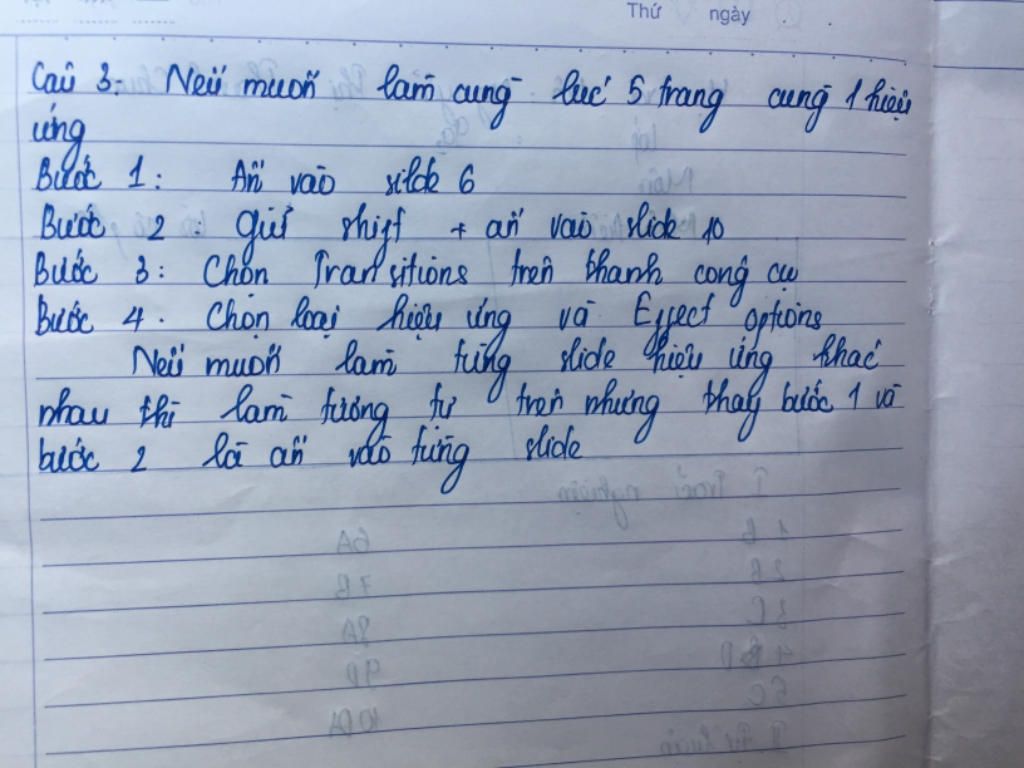 Thứ ngày
Câu 3: Nếu muốn làm cùng lúc 5 trang cùng 1 hiệu
ứng
Bước 1: Ấn vào silde 6
Bước 2: Giữ shift + ấn vào slide 10
Bước 3: Chọn Transitions trên thanh công cụ
Bước 4. Chọn loại hiệu ứng và Effect options
Nếu muốn làm từng slide hiệu ứng khác
nhau thì làm tương tự trên nhưng thay bước 1 và
bước 2 là ấn vào từng slide